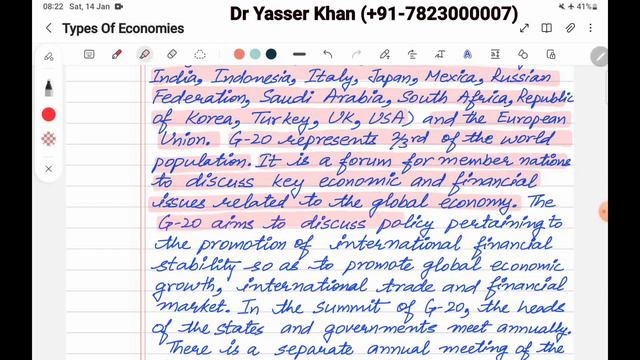 08:22 Sat, 14 Jan
Dr Yasser Khan (+91-7823000007)
41%
Types Of Economies
India, Indonesia, Italy, Japan, Mexica, Russian
Federation, Saudi Arabia, South Africa, Republic
of Korea, Turkey, UK, USA) and the European
Union. G-20 represents 2/3rd of the world
population. It is a forum for member nations
to discuss key economic and financial
issues related to the global economy. The
G-20 aims to discuss policy pertaining to
the promotion of international financial
stability so as to promote global economic
growth, international trade and financial
market. In the summit of G-20, the heads
of the states and governments meet annually.
There is a separate annual meeting of the